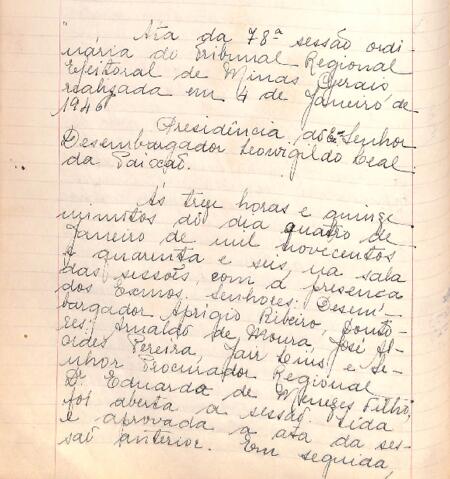 Ata da 78ª sessão ordi-
nária do Tribunal Regional
Eleitoral de Minas Gerais
realizada em 4 de Janeiro de
1946
Presidência do Exº Senhor
Desembargador Leovigildo Leal
da Paixão.
Às treze horas e quinze
minutos do dia quatro de
Janeiro de mil novecentos
e quarenta e seis, na sala
das sessões, com a presença
dos Exmos. Senhores: Desem-
bargador Aprigio Ribeiro, Douto-
res: Arnaldo de Moura, José Al-
cides Pereira, Jair Lins, e Se-
nhor Procurador Regional
Dr. Eduardo de Menezes Filho,
foi aberta a sessão. Lida
e aprovada a ata da ses-
são anterior. Em seguida,